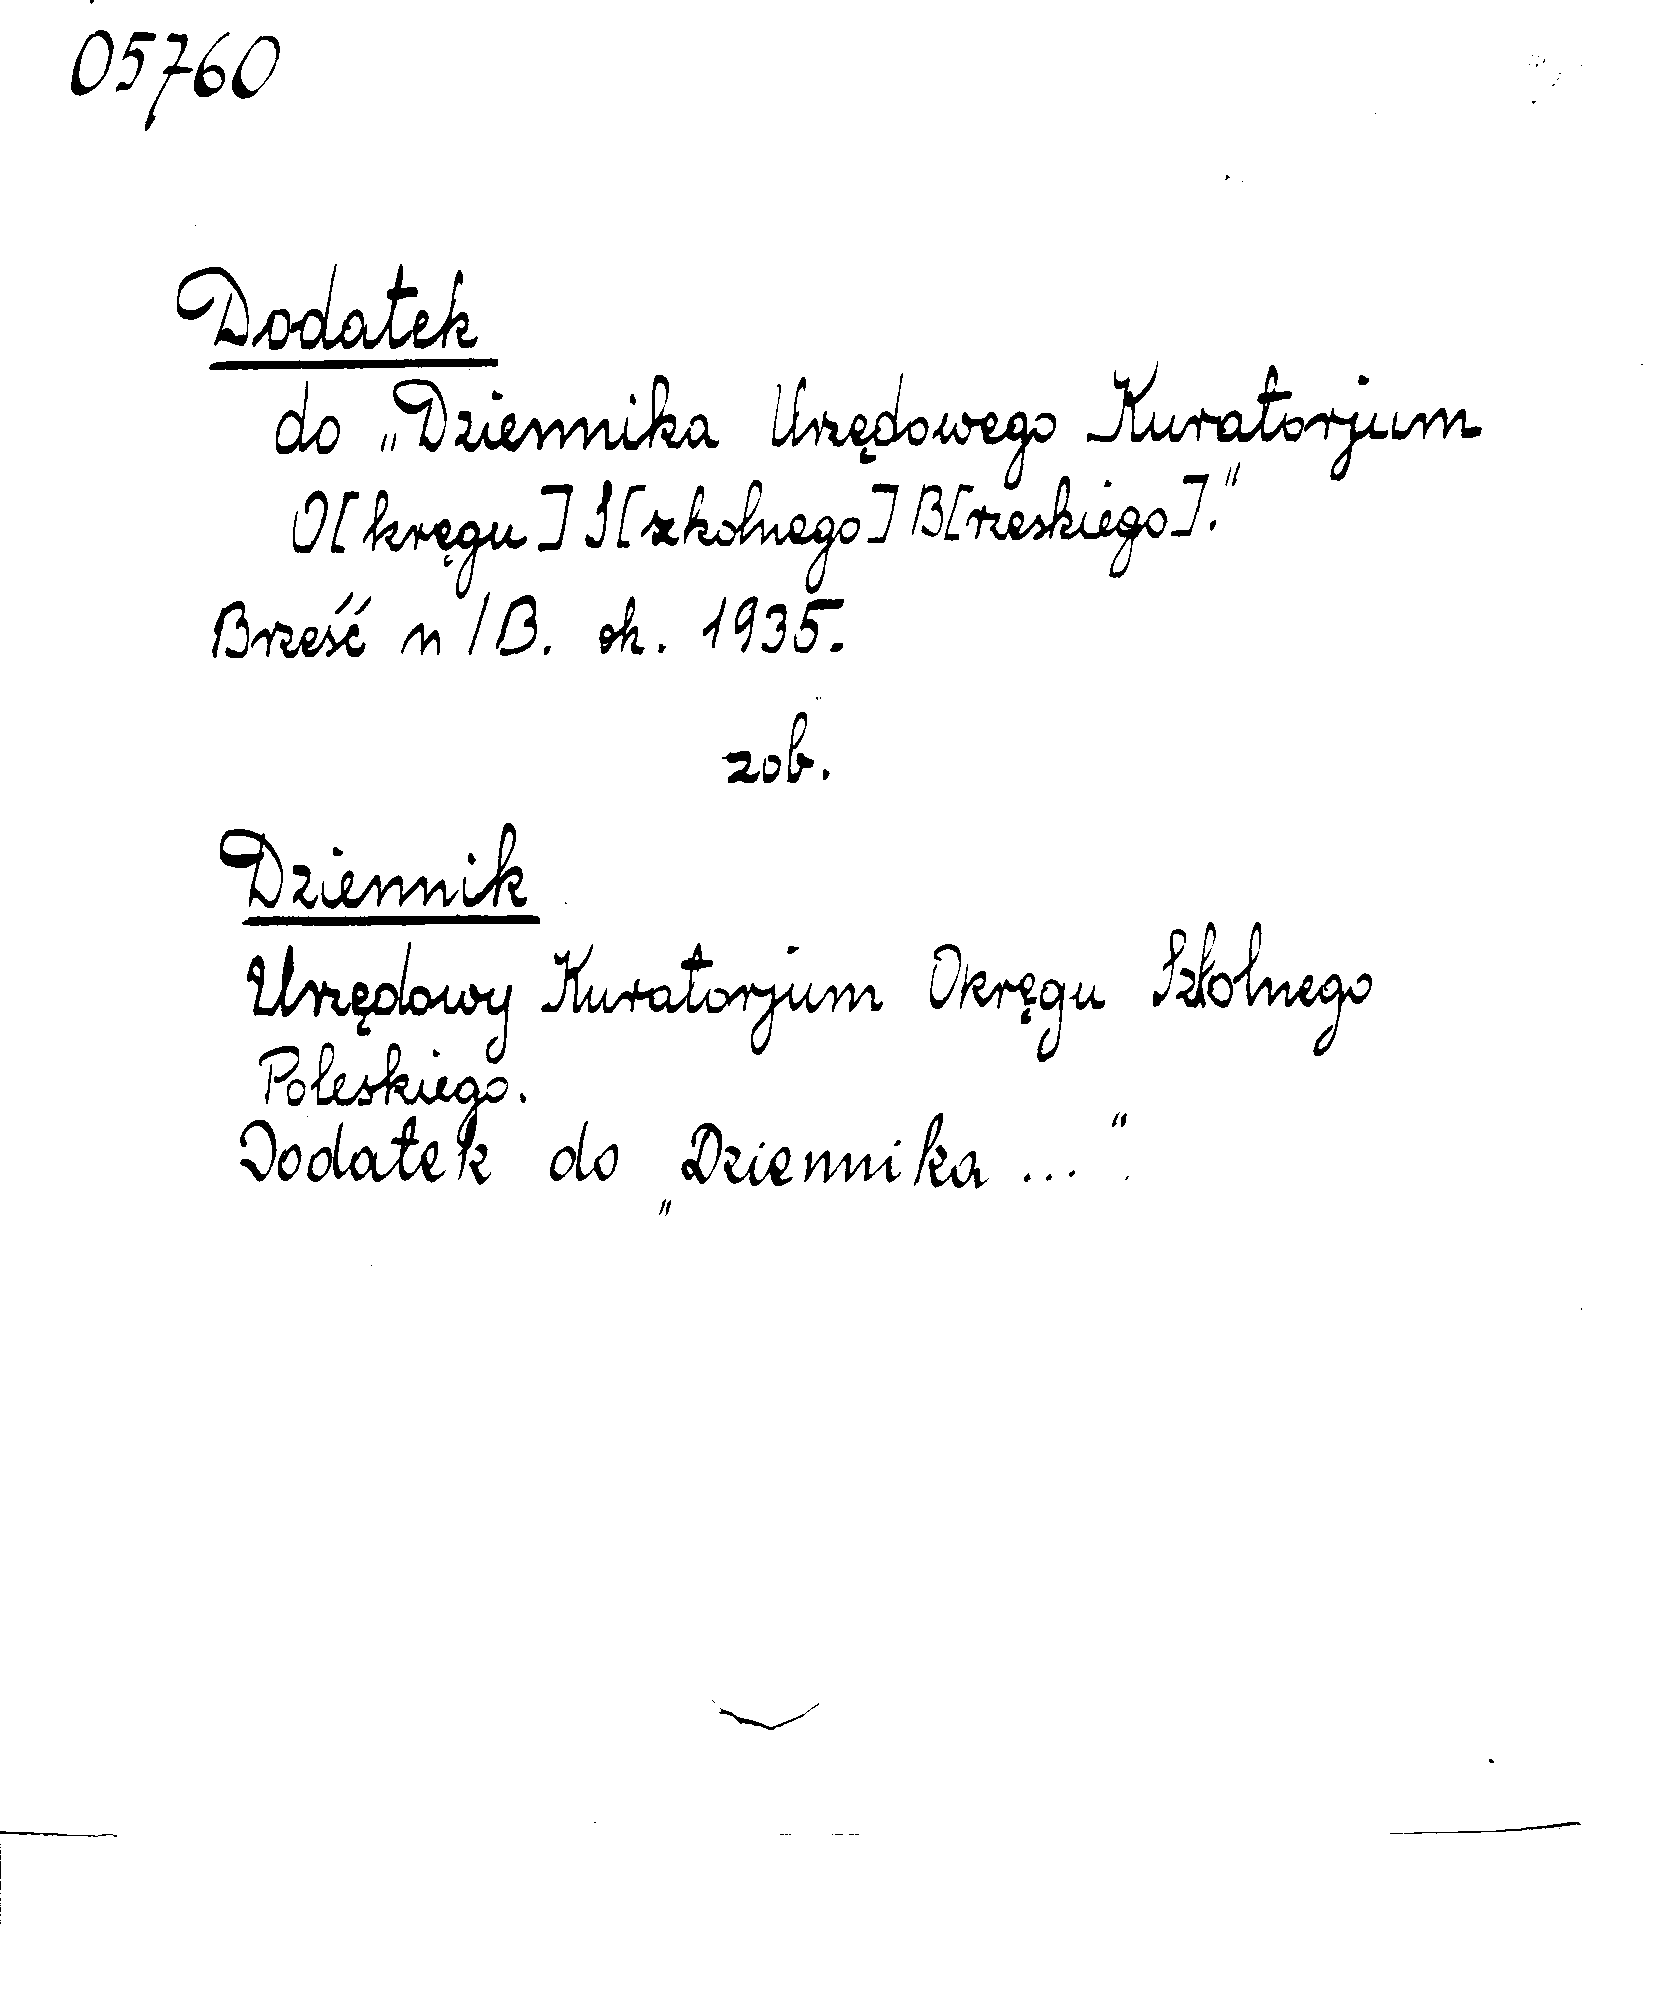 05760
Dodatek
do „Dziennika Urzędowego Kuratorjum
O[kręgu] S[zkolnego] B[rzeskiego].“
Brześć n/B. ok. 1935.
zob.
Dziennik
Urzędowy Kuratorjum Okręgu Szkolnego
Poleskiego.
Dodatek do „Dziennika ...“.